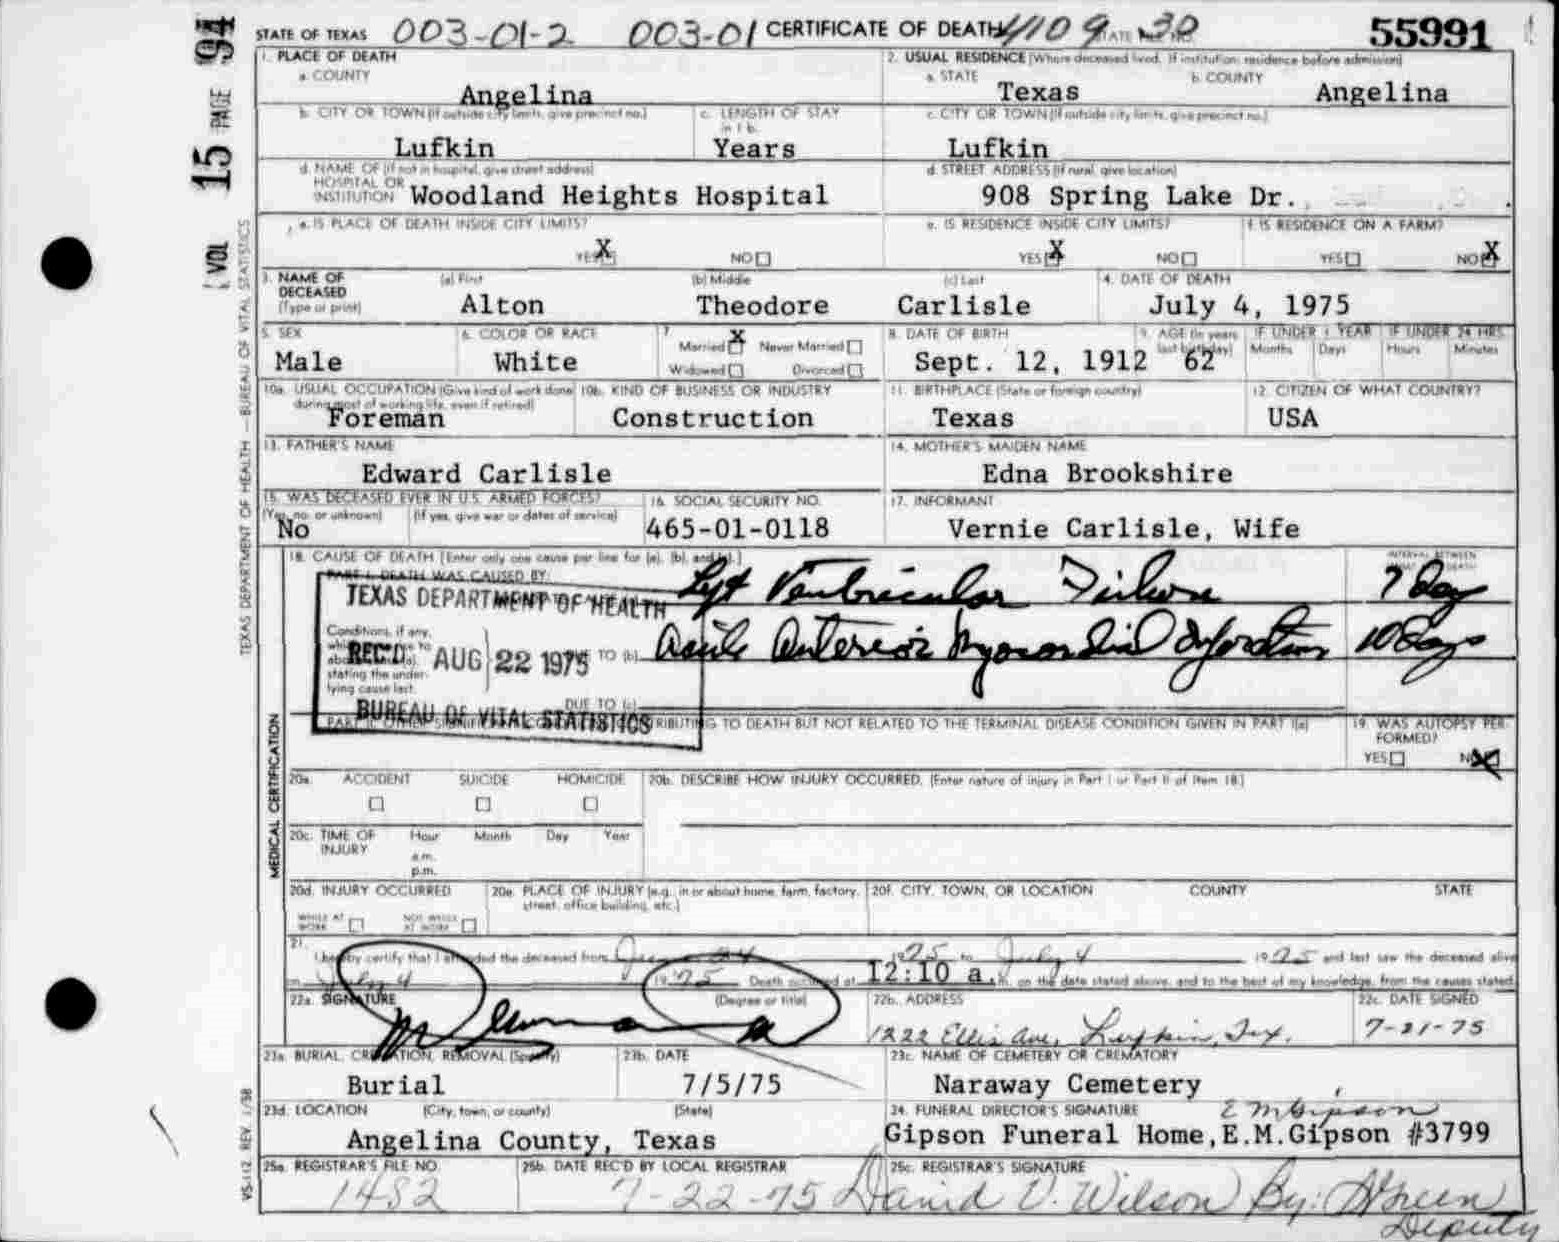 STATE OF TEXAS 003-01-2 003-01 CERTIFICATE OF DEATH 55991
1. PLACE OF DEATH
a. COUNTY
Angelina
2. USUAL RESIDENCE (Where deceased lived. If institution: residence before admission)
a. STATE
Texas
b. COUNTY
Angelina
b. CITY OR TOWN (If outside city limits, give precinct no.)
Lufkin
c. LENGTH OF STAY
in 1 b.
Years
c. CITY OR TOWN (If outside city limits, give precinct no.)
Lufkin
d. NAME OF (If not in hospital, give street address)
HOSPITAL OR
INSTITUTION Woodland Heights Hospital
d. STREET ADDRESS (If rural, give location)
908 Spring Lake Dr.
e. IS PLACE OF DEATH INSIDE CITY LIMITS?
YES X NO
e. IS RESIDENCE INSIDE CITY LIMITS?
YES X NO
f. IS RESIDENCE ON A FARM?
YES NO X
3. NAME OF
DECEASED
(Type or print)
(a) First
Alton
(b) Middle
Theodore
(c) Last
Carlisle
4. DATE OF DEATH
July 4, 1975
5. SEX
Male
6. COLOR OR RACE
White
7.
Married X Never Married
Widowed Divorced
8. DATE OF BIRTH
Sept. 12, 1912
9. AGE (In years
last birthday)
62
IF UNDER 1 YEAR
Months Days
IF UNDER 24 HRS.
Hours Minutes
10a. USUAL OCCUPATION (Give kind of work done
during most of working life, even if retired)
Foreman
10b. KIND OF BUSINESS OR INDUSTRY
Construction
11. BIRTHPLACE (State or foreign country)
Texas
12. CITIZEN OF WHAT COUNTRY?
USA
13. FATHER'S NAME
Edward Carlisle
14. MOTHER'S MAIDEN NAME
Edna Brookshire
15. WAS DECEASED EVER IN U.S. ARMED FORCES?
(Yes, no, or unknown) (If yes, give war or dates of service)
No
16. SOCIAL SECURITY NO.
465-01-0118
17. INFORMANT
Vernie Carlisle, Wife
18. CAUSE OF DEATH [Enter only one cause per line for (a), (b), and (c).]
INTERVAL BETWEEN
PART I. DEATH WAS CAUSED BY:
Left Ventricular Failure 7 Day
TEXAS DEPARTMENT OF HEALTH
Conditions, if any,
stating the under-
lying cause last.
REC'D AUG 22 1975
TO (b) Acute Anterior Myocardial Infarction 10 Days
DUE TO (c)
BUREAU OF VITAL STATISTICS
CONTRIBUTING TO DEATH BUT NOT RELATED TO THE TERMINAL DISEASE CONDITION GIVEN IN PART I(a)
19. WAS AUTOPSY PER-
FORMED?
YES NO X
20a. ACCIDENT SUICIDE HOMICIDE
20b. DESCRIBE HOW INJURY OCCURRED. (Enter nature of injury in Part I or Part II of Item 18.)
20c. TIME OF
INJURY
Hour Month Day Year
a.m.
p.m.
20d. INJURY OCCURRED
WHILE AT
WORK
NOT WHILE
AT WORK
20e. PLACE OF INJURY (e.g., in or about home, farm, factory,
street, office building, etc.)
20f. CITY, TOWN, OR LOCATION COUNTY STATE
21.
I hereby certify that I attended the deceased from June 24 1975 to July 4 1975 and last saw the deceased alive
on July 4 1975. Death occurred at 12:10 a.m. on the date stated above, and to the best of my knowledge, from the causes stated.
22a. SIGNATURE
(Degree or title)
22b. ADDRESS
1222 Ellis Ave, Lufkin, Tex.
22c. DATE SIGNED
7-21-75
23a. BURIAL, CREMATION, REMOVAL (Specify)
Burial
23b. DATE
7/5/75
23c. NAME OF CEMETERY OR CREMATORY
Naraway Cemetery
23d. LOCATION (City, town, or county) (State)
Angelina County, Texas
24. FUNERAL DIRECTOR'S SIGNATURE E M Gipson
Gipson Funeral Home, E.M.Gipson #3799
25a. REGISTRAR'S FILE NO.
1482
25b. DATE REC'D BY LOCAL REGISTRAR
7-22-75
25c. REGISTRAR'S SIGNATURE
David V. Wilson By: Green
Deputy
MEDICAL CERTIFICATION
VOL 15 PAGE 94
TEXAS DEPARTMENT OF HEALTH — BUREAU OF VITAL STATISTICS
VS-112 REV. 1/58